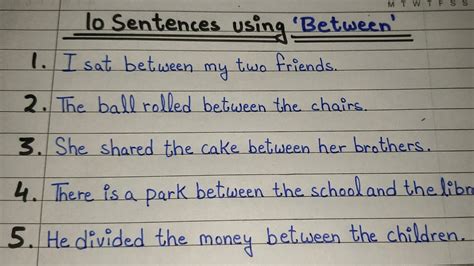 M T W T F S S
10 Sentences using 'Between'
1. I sat between my two friends.
2. The ball rolled between the chairs.
3. She shared the cake between her brothers.
4. There is a park between the school and the libr
5. He divided the money between the children.